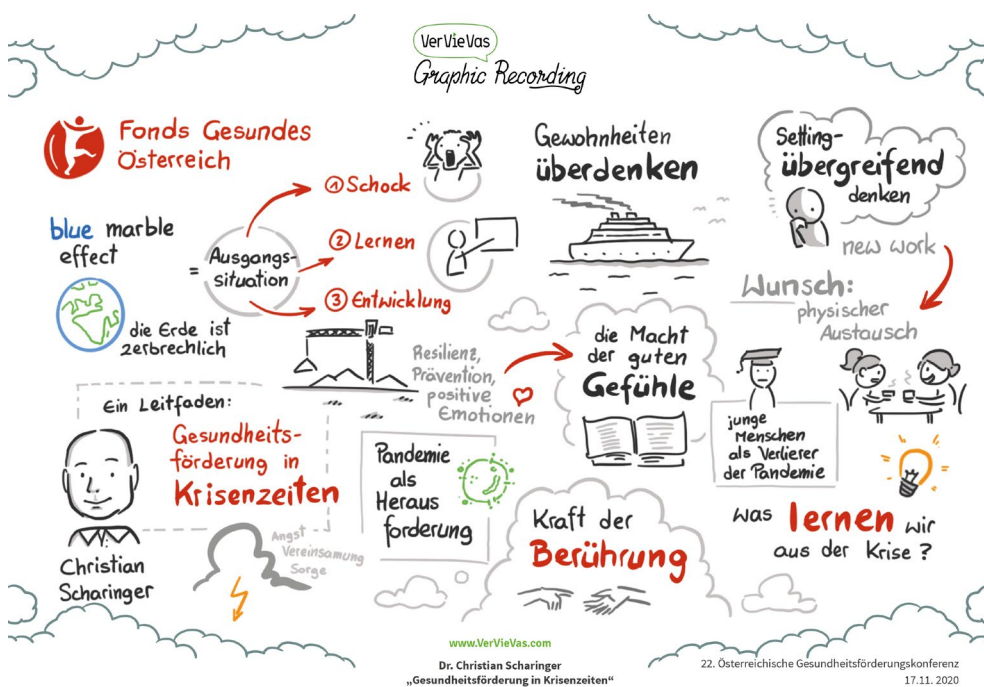 VerVieVas
Graphic Recording
Fonds Gesundes
Österreich
blue marble
effect
die Erde ist
zerbrechlich
=
Ausgangs-
situation
① Schock
② Lernen
③ Entwicklung
Resilienz,
Prävention,
positive
Emotionen
Gewohnheiten
überdenken
Setting-
übergreifend
denken
new work
Wunsch:
physischer
Austausch
die Macht
der guten
Gefühle
junge
Menschen
als Verlierer
der Pandemie
Ein Leitfaden:
Gesundheits-
förderung in
Krisenzeiten
Christian
Scharinger
Angst
Vereinsamung
Sorge
Pandemie
als
Heraus
forderung
Kraft der
Berührung
was lernen wir
aus der Krise?
www.VerVieVas.com
Dr. Christian Scharinger
„Gesundheitsförderung in Krisenzeiten“
22. Österreichische Gesundheitsförderungskonferenz
17.11. 2020